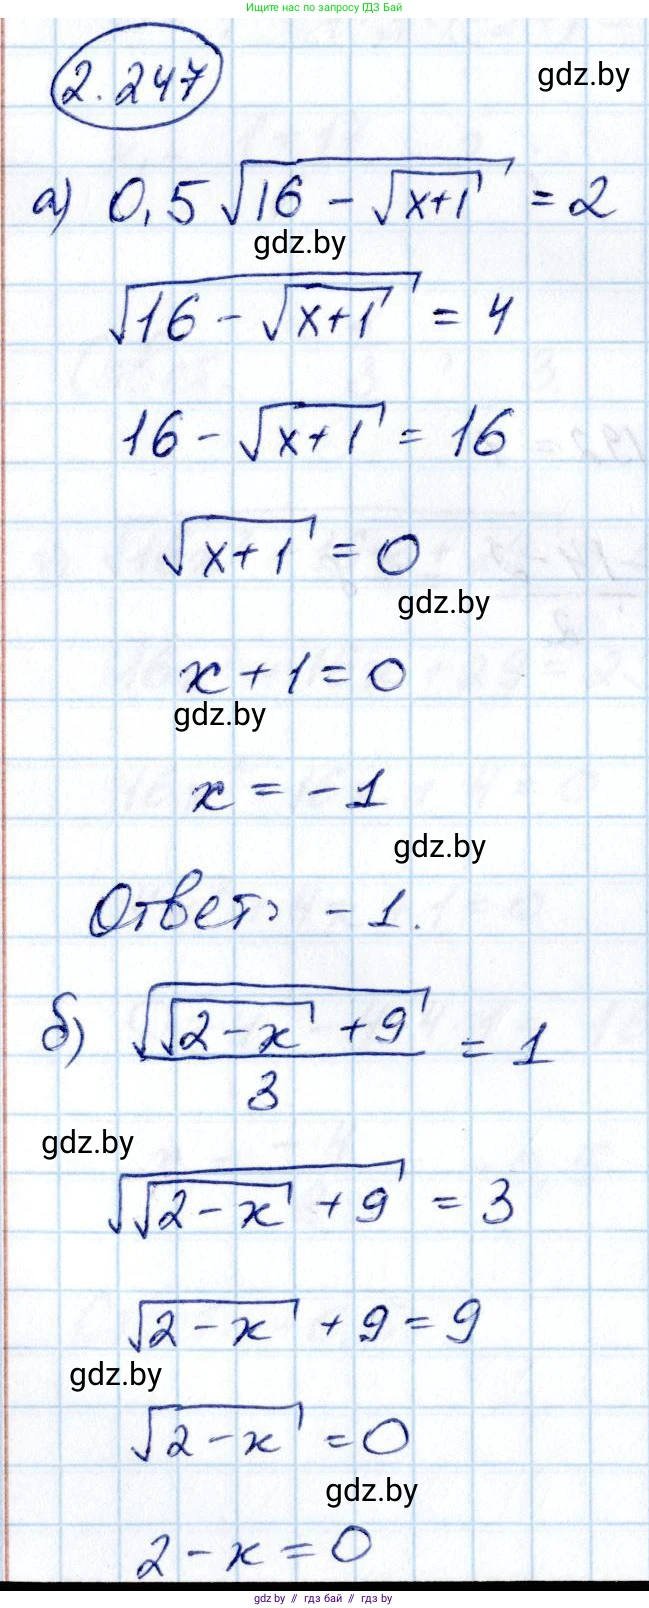 Ищите нас по запросу ГДЗ Бай
2.247
gdz.by
а) 0,5√(16 - √(x+1)) = 2
gdz.by
√(16 - √(x+1)) = 4
16 - √(x+1) = 16
√(x+1) = 0
gdz.by
x + 1 = 0
gdz.by
x = -1
gdz.by
Ответ: -1.
б) √(√(2-x) + 9) / 3 = 1
gdz.by
√(√(2-x) + 9) = 3
√(2-x) + 9 = 9
gdz.by
√(2-x) = 0
gdz.by
2 - x = 0
gdz.by // гдз бай // гдз.by